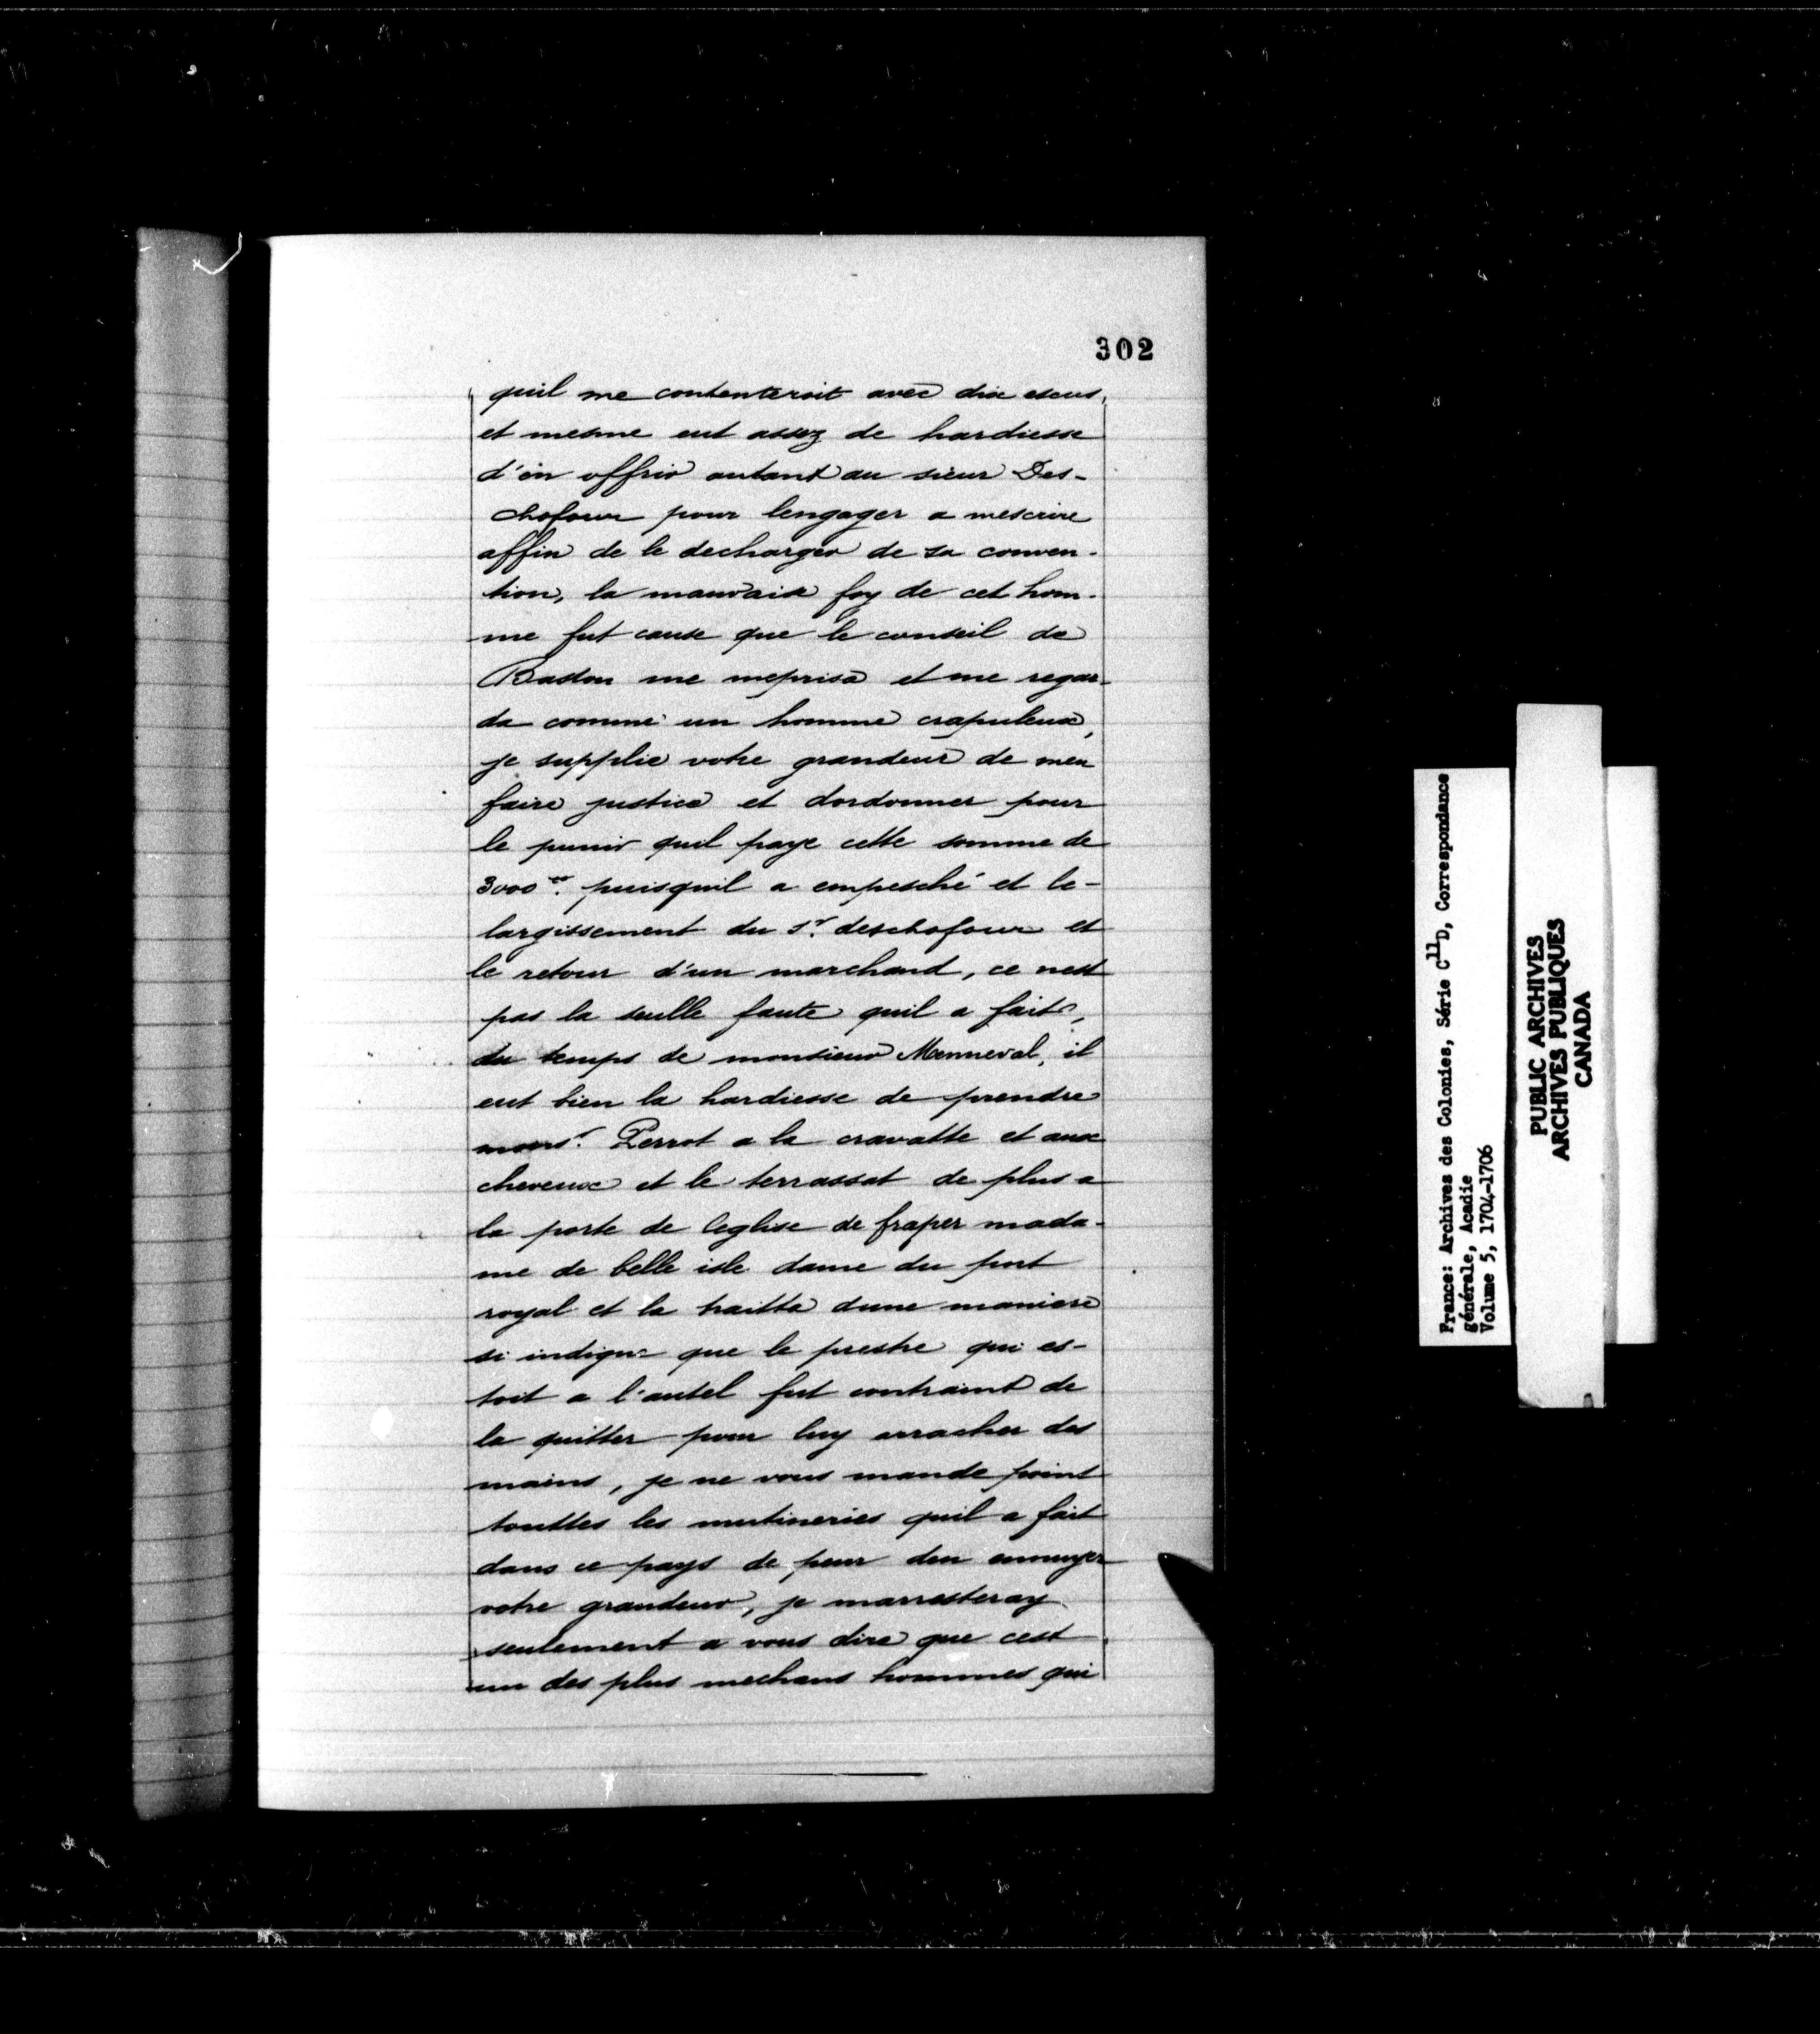 302
quil me contenteroit avec dix escus,
et mesme eut assez de hardiesse
d'en offrir autant au sieur Des-
chofour pour lengager a mescrire
affin de le decharger de sa conven-
tion, la mauvaise foy de cet hom-
me fut cause que le conseil de
Baston me meprisa et me regar-
da comme un homme crapuleux,
je supplie votre grandeur de men
faire justice et dordonner pour
le punir quil paye cette somme de
3000tt. puisquil a empesché et le-
largissement du Sr. deschofour et
le retour d'un marchand, ce nest
pas la seulle faute quil a faite,
du temps de monsieur Manneval, il
eut bien la hardiesse de prendre
monsr. Perrot a la cravatte et aux
cheveux et le terrassat de plus a
la porte de leglise de fraper mada-
me de belle isle dame du port
royal et la traitta dune maniere
si indigne que le prestre qui es-
toit a l'autel fut contraint de
la quitter pour luy arracher des
mains, je ne vous mande point
touttes les mutineries quil a fait
dans ce pays de peur den ennuyer
votre grandeur, je marresteray
seulement a vous dire que cest
un des plus mechans hommes qui
France: Archives des Colonies, Série C11D, Correspondance
générale, Acadie
Volume 5, 1704-1706
PUBLIC ARCHIVES
ARCHIVES PUBLIQUES
CANADA